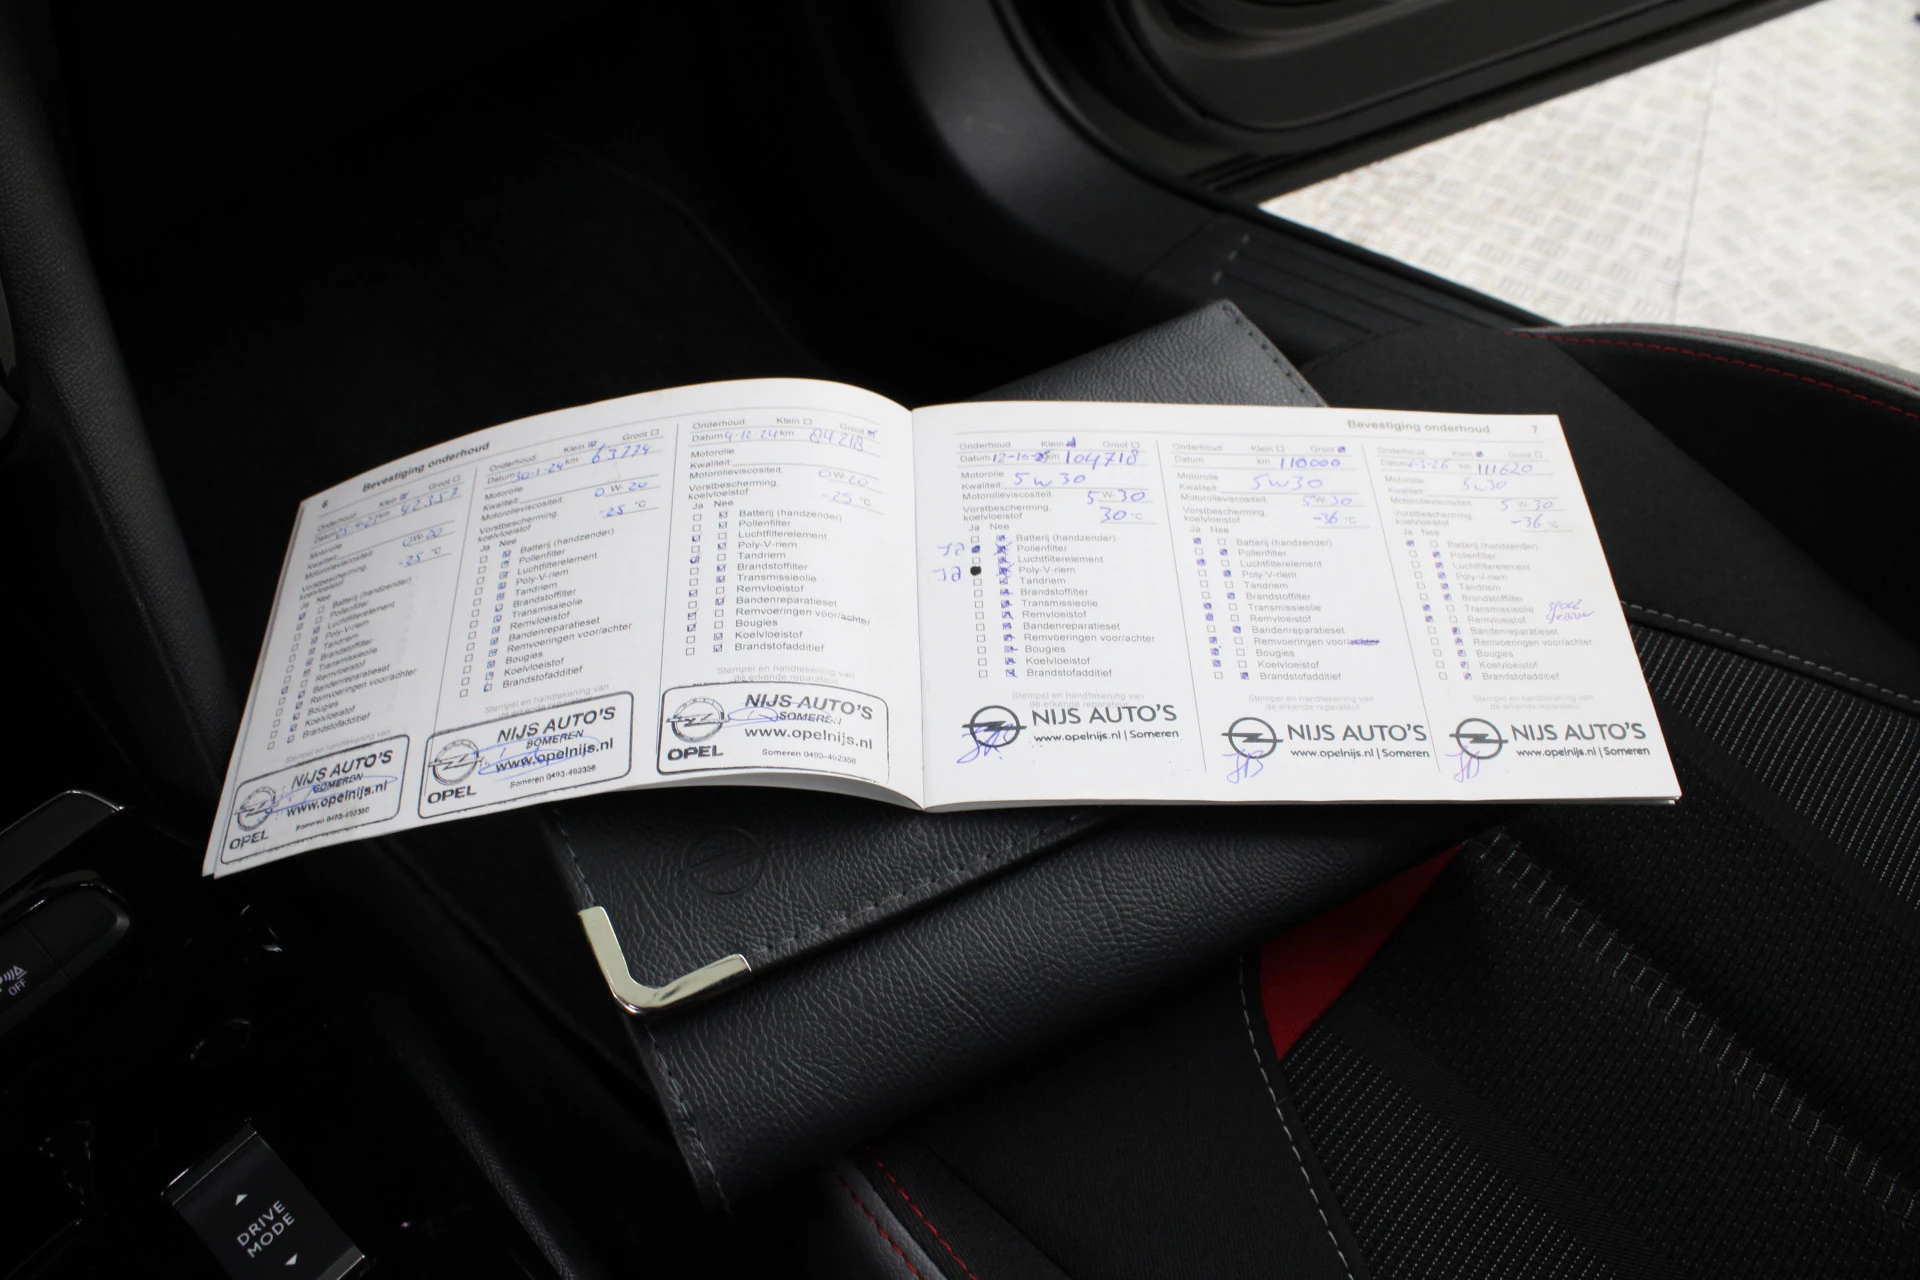 6 Bevestiging onderhoud
Onderhoud Klein Groot
Datum km 42357
Motorolie
Kwaliteit
Motorolieviscositeit 0W-20
Vorstbescherming,
koelvloeistof -25 °C
Ja Nee
Batterij (handzender)
Pollenfilter
Luchtfilterelement
Poly-V-riem
Tandriem
Brandstoffilter
Transmissieolie
Remvloeistof
Bandenreparatieset
Remvoeringen voor/achter
Bougies
Koelvloeistof
Brandstofadditief
Stempel en handtekening van
NIJS AUTO'S
SOMEREN
www.opelnijs.nl
Someren 0493-492356
OPEL
Onderhoud Klein Groot
Datum 30-1-24 km 63774
Motorolie
Kwaliteit
Motorolieviscositeit 0W-20
Vorstbescherming,
koelvloeistof -25 °C
Ja Nee
Batterij (handzender)
Pollenfilter
Luchtfilterelement
Poly-V-riem
Tandriem
Brandstoffilter
Transmissieolie
Remvloeistof
Bandenreparatieset
Remvoeringen voor/achter
Bougies
Koelvloeistof
Brandstofadditief
Stempel en handtekening van
de erkende reparateur
NIJS AUTO'S
SOMEREN
www.opelnijs.nl
Someren 0493-492356
OPEL
Onderhoud Klein Groot
Datum 9-12-24 km 84218
Motorolie
Kwaliteit
Motorolieviscositeit 0W-20
Vorstbescherming,
koelvloeistof -25 °C
Ja Nee
Batterij (handzender)
Pollenfilter
Luchtfilterelement
Poly-V-riem
Tandriem
Brandstoffilter
Transmissieolie
Remvloeistof
Bandenreparatieset
Remvoeringen voor/achter
Bougies
Koelvloeistof
Brandstofadditief
Stempel en handtekening van
de erkende reparateur
NIJS AUTO'S
SOMEREN
www.opelnijs.nl
Someren 0493-492356
OPEL
Bevestiging onderhoud 7
Onderhoud Klein Groot
Datum 12-10-25 km 104718
Motorolie
Kwaliteit 5w30
Motorolieviscositeit 5W-30
Vorstbescherming,
koelvloeistof 30 °C
Ja Nee
Batterij (handzender)
Ja Pollenfilter
Luchtfilterelement
Ja Poly-V-riem
Tandriem
Brandstoffilter
Transmissieolie
Remvloeistof
Bandenreparatieset
Remvoeringen voor/achter
Bougies
Koelvloeistof
Brandstofadditief
Stempel en handtekening van
de erkende reparateur
NIJS AUTO'S
www.opelnijs.nl | Someren
Onderhoud Klein Groot
Datum km 110000
Motorolie
Kwaliteit 5W30
Motorolieviscositeit 5W-30
Vorstbescherming,
koelvloeistof -36 °C
Ja Nee
Batterij (handzender)
Pollenfilter
Luchtfilterelement
Poly-V-riem
Tandriem
Brandstoffilter
Transmissieolie
Remvloeistof
Bandenreparatieset
Remvoeringen voor/achter
Bougies
Koelvloeistof
Brandstofadditief
Stempel en handtekening van
de erkende reparateur
NIJS AUTO'S
www.opelnijs.nl | Someren
Onderhoud Klein Groot
Datum km 111620
Motorolie
Kwaliteit 5w30
Motorolieviscositeit 5W-30
Vorstbescherming,
koelvloeistof -36 °C
Ja Nee
Batterij (handzender)
Pollenfilter
Luchtfilterelement
Poly-V-riem
Tandriem
Brandstoffilter
Transmissieolie
Remvloeistof
Bandenreparatieset
Remvoeringen voor/achter
Bougies
Koelvloeistof
Brandstofadditief
Stempel en handtekening van
de erkende reparateur
NIJS AUTO'S
www.opelnijs.nl | Someren
OFF
DRIVE
MODE